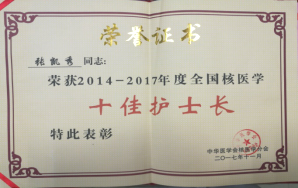 荣誉证书
张凯秀同志:
荣获2014-2017年度全国核医学
十佳护士长
特此表彰
中华医学会核医学分会
二〇一七年十一月